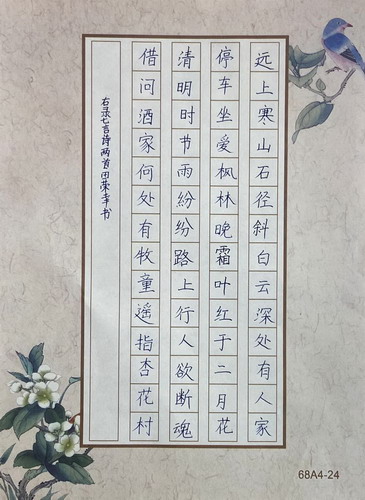 远上寒山石径斜白云深处有人家
停车坐爱枫林晚霜叶红于二月花
清明时节雨纷纷路上行人欲断魂
借问酒家何处有牧童遥指杏花村
右录七言诗两首田荣幸书
68A4-24